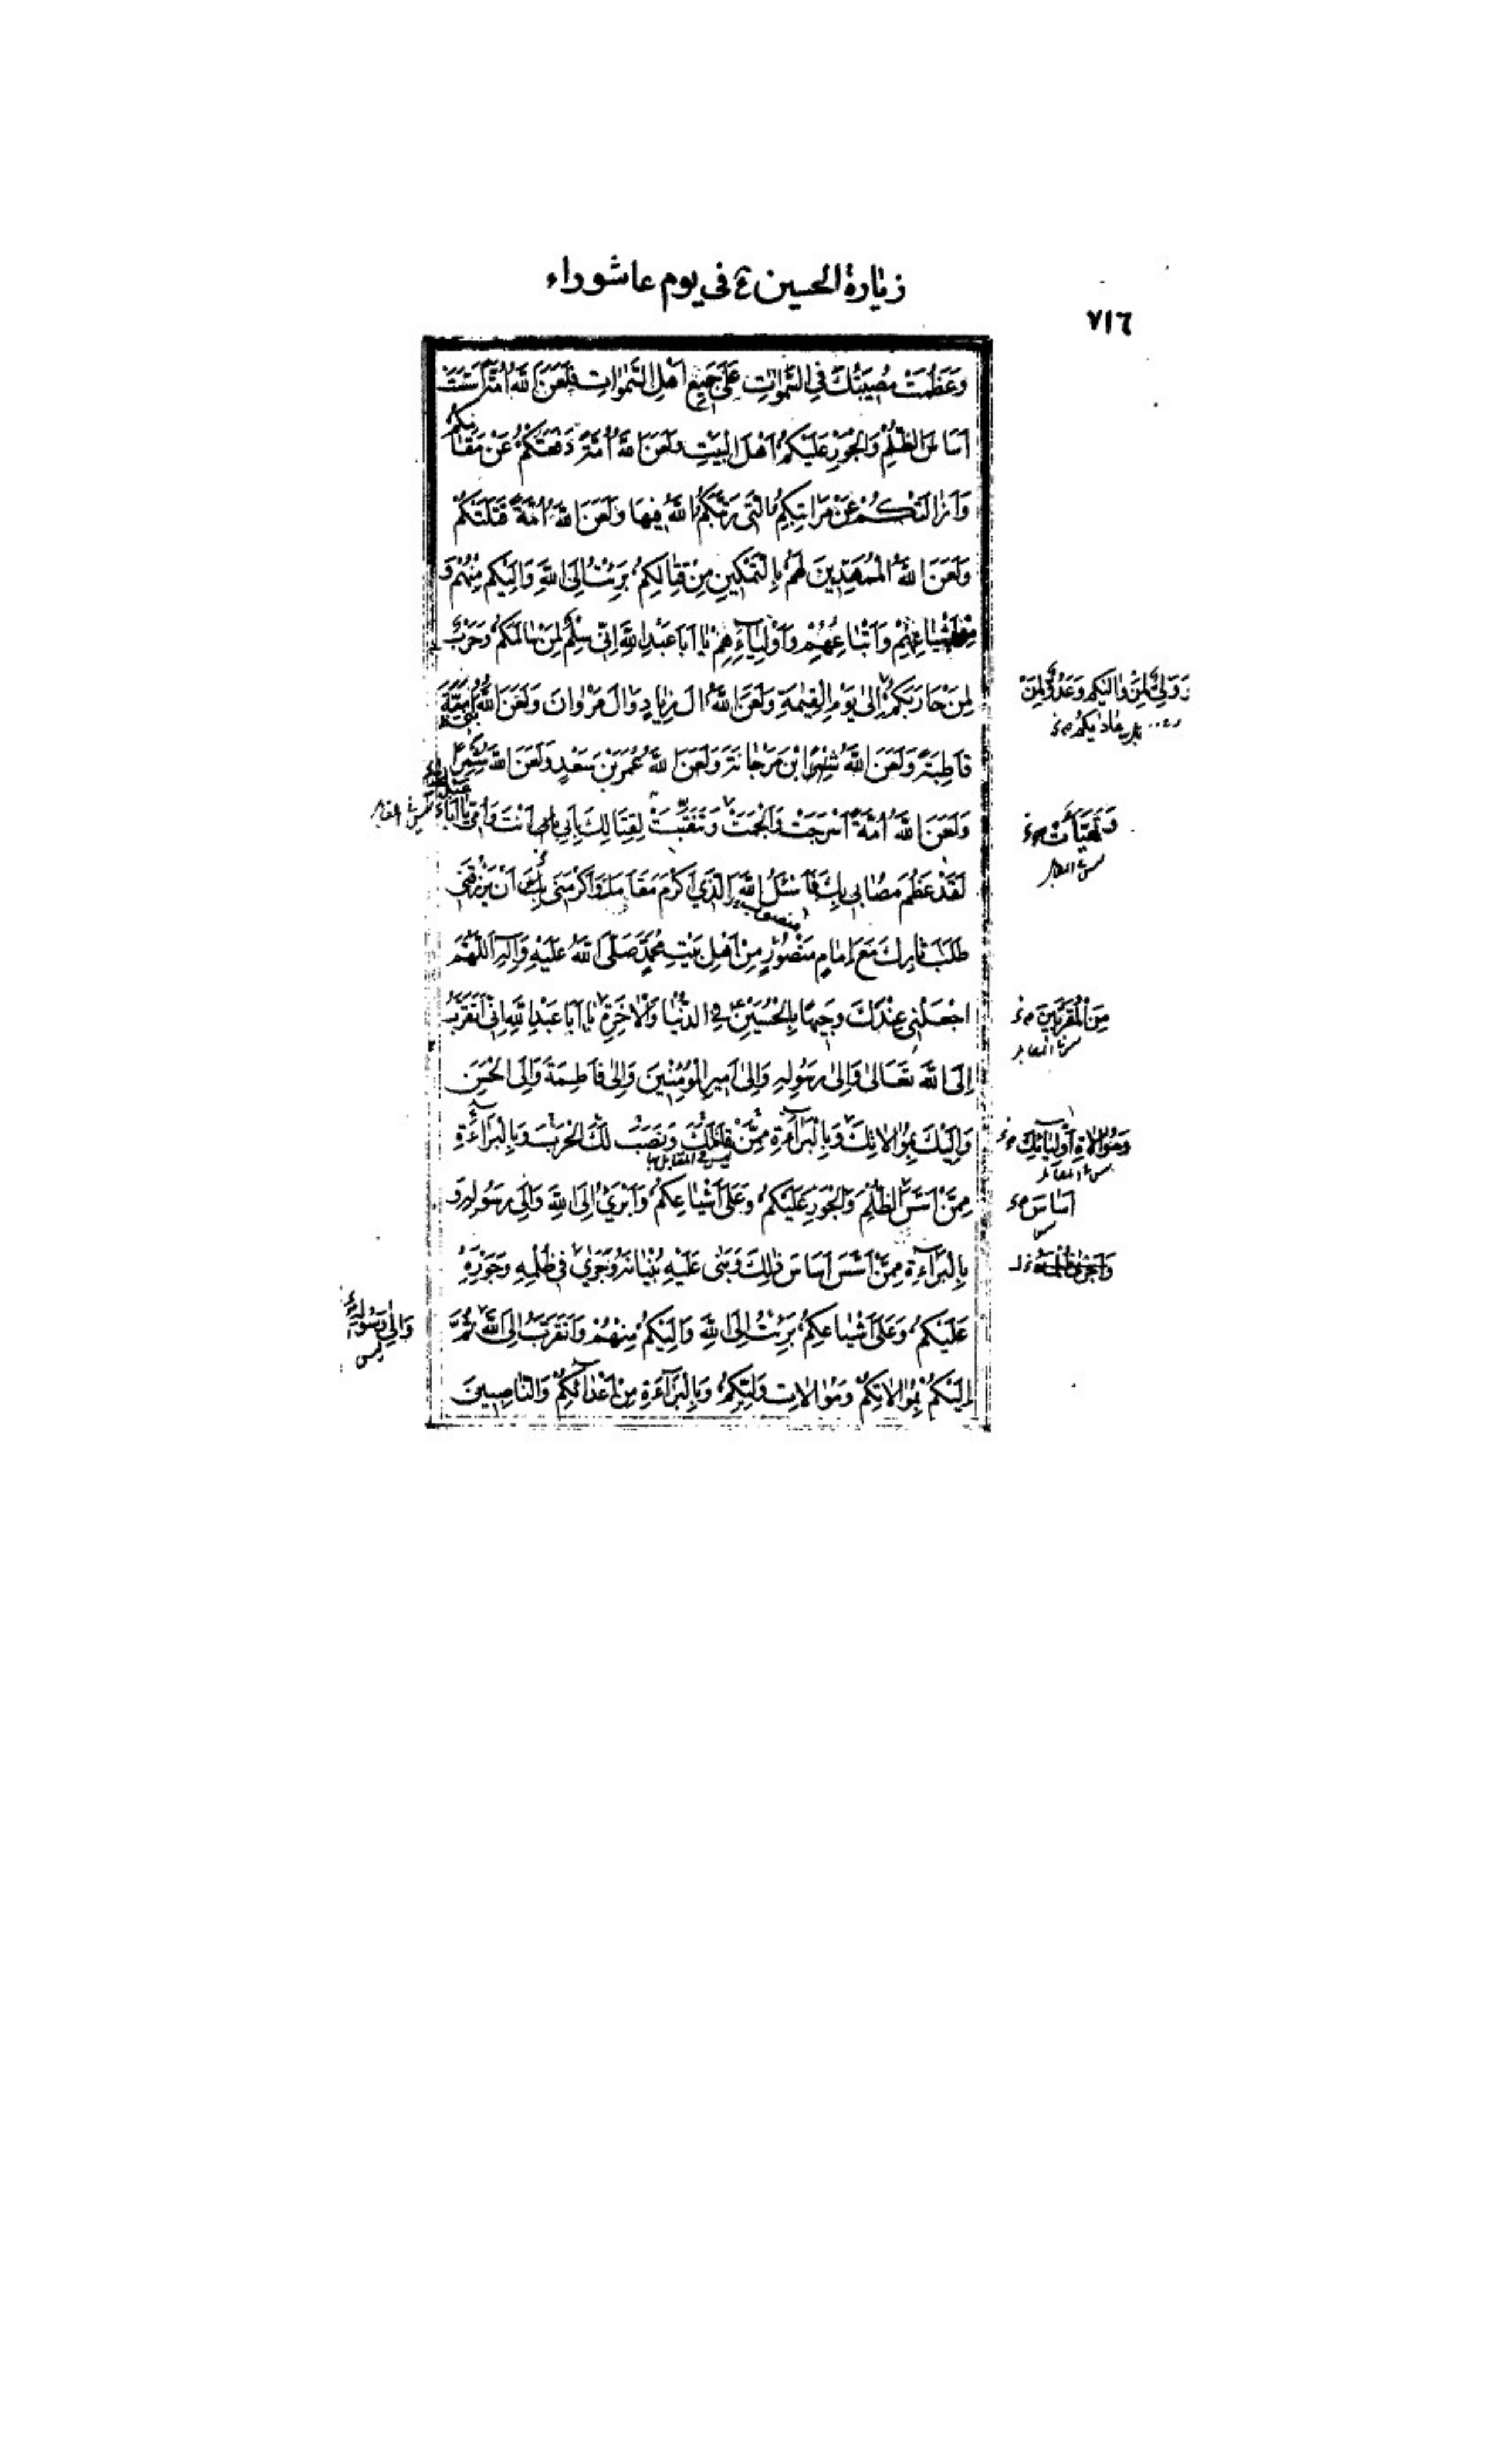 زيارة الحسين ع في يوم عاشوراء
٧١٦
وَعَظُمَتْ مُصيبَتُكَ فِي السَّمٰوٰاتِ عَلىٰ جَميعِ اَهْلِ السَّمٰوٰاتِ فَلَعَنَ اللهُ اُمَّةً اَسَّسَتْ
اَسَاسَ الظُّلْمِ وَالْجَوْرِ عَلَيْكُمْ اَهْلَ الْبَيْتِ وَلَعَنَ اللهُ اُمَّةً دَفَعَتْكُمْ عَنْ مَقٰامِكُمْ
وَاَزٰالَتْكُمْ عَنْ مَرٰاتِبِكُمُ الَّتي رَتَّبَكُمُ اللهُ فيهٰا وَلَعَنَ اللهُ اُمَّةً قَتَلَتْكُمْ
وَلَعَنَ اللهُ الْمُمَهِّدِينَ لَهُمْ بِالتَّمْكينِ مِنْ قِتٰالِكُمْ بَرِئْتُ اِلَى اللهِ وَاِلَيْكُمْ مِنْهُمْ وَ
اَشْيٰاعِهِمْ وَاَتْبٰاعِهِمْ وَاَوْلِيٰآءِهِمْ يٰا اَبٰا عَبْدِ اللهِ اِنّي سِلْمٌ لِمَنْ سٰالَمَكُمْ وَحَرْبٌ
لِمَنْ حٰارَبَكُمْ اِلىٰ يَوْمِ الْقِيٰمَةِ وَلَعَنَ اللهُ اٰلَ زِيٰادٍ وَاٰلَ مَرْوٰانَ وَلَعَنَ اللهُ بَنى اُمَيَّةَ
وَوَلِيٌّ لِمَنْ وٰالٰيكُمْ وَعَدُوٌّ لِمَنْ
عٰادٰيكُمْ
قٰاطِبَةً وَلَعَنَ اللهُ ابْنَ مَرْجٰانَةَ وَلَعَنَ اللهُ عُمَرَ بْنَ سَعْدٍ وَلَعَنَ اللهُ شِمْرًا
وَلَعَنَ اللهُ اُمَّةً اَسْرَجَتْ وَاَلْجَمَتْ وَتَنَقَّبَتْ لِقِتٰالِكَ بِاَبي اَنْتَ وَاُمّي يٰا اَبٰا عَبْدِ اللهِ
وَتَهَيَّاَتْ
لَقَدْ عَظُمَ مُصٰابي بِكَ فَاَسْئَلُ اللهَ الَّذي اَكْرَمَ مَقٰامَكَ وَاَكْرَمَنى بِكَ اَنْ يَرْزُقَنى
طَلَبَ ثٰارِكَ مَعَ اِمٰامٍ مَنْصُورٍ مِنْ اَهْلِ بَيْتِ مُحَمَّدٍ صَلَّى اللهُ عَلَيْهِ وَاٰلِهِ اَللّٰهُمَّ
اجْعَلْني عِنْدَكَ وَجيهًا بِالْحُسَيْنِ فِي الدُّنْيٰا وَالْاٰخِرَةِ يٰا اَبٰا عَبْدِ اللهِ اِنّي اَتَقَرَّبُ
مِنَ الْمُقَرَّبينَ
اِلَى اللهِ تَعٰالىٰ وَاِلىٰ رَسُولِهِ وَاِلىٰ اَميرِ الْمُؤْمِنينَ وَاِلىٰ فٰاطِمَةَ وَاِلَى الْحَسَنِ
وَاِلَيْكَ بِمُوٰالاتِكَ وَبِالْبَرٰآءَةِ مِمَّنْ قٰاتَلَكَ وَنَصَبَ لَكَ الْحَرْبَ وَبِالْبَرٰاءَةِ
وَمُوٰالاةِ اَوْلِيٰائِكَ
مِمَّنْ اَسَّسَ الظُّلْمَ وَالْجَوْرَ عَلَيْكُمْ وَعَلىٰ اَشْيٰاعِكُمْ وَاَبْرَئُ اِلَى اللهِ وَاِلىٰ رَسُولِهِ وَ
اَسٰاسَ
بِالْبَرٰآءَةِ مِمَّنْ اَسَّسَ اَسٰاسَ ذٰلِكَ وَبَنىٰ عَلَيْهِ بُنْيٰانَهُ وَجَرىٰ في ظُلْمِهِ وَجَوْرِهِ
عَلَيْكُمْ وَعَلىٰ اَشْيٰاعِكُمْ بَرِئْتُ اِلَى اللهِ وَاِلَيْكُمْ مِنْهُمْ وَاَتَقَرَّبُ اِلَى اللهِ ثُمَّ
وَاِلىٰ رَسُولِهِ
اِلَيْكُمْ بِمُوٰالاتِكُمْ وَمُوٰالاتِ وَلِيِّكُمْ وَبِالْبَرٰآءَةِ مِنْ اَعْدٰآئِكُمْ وَالنّٰاصِبينَ